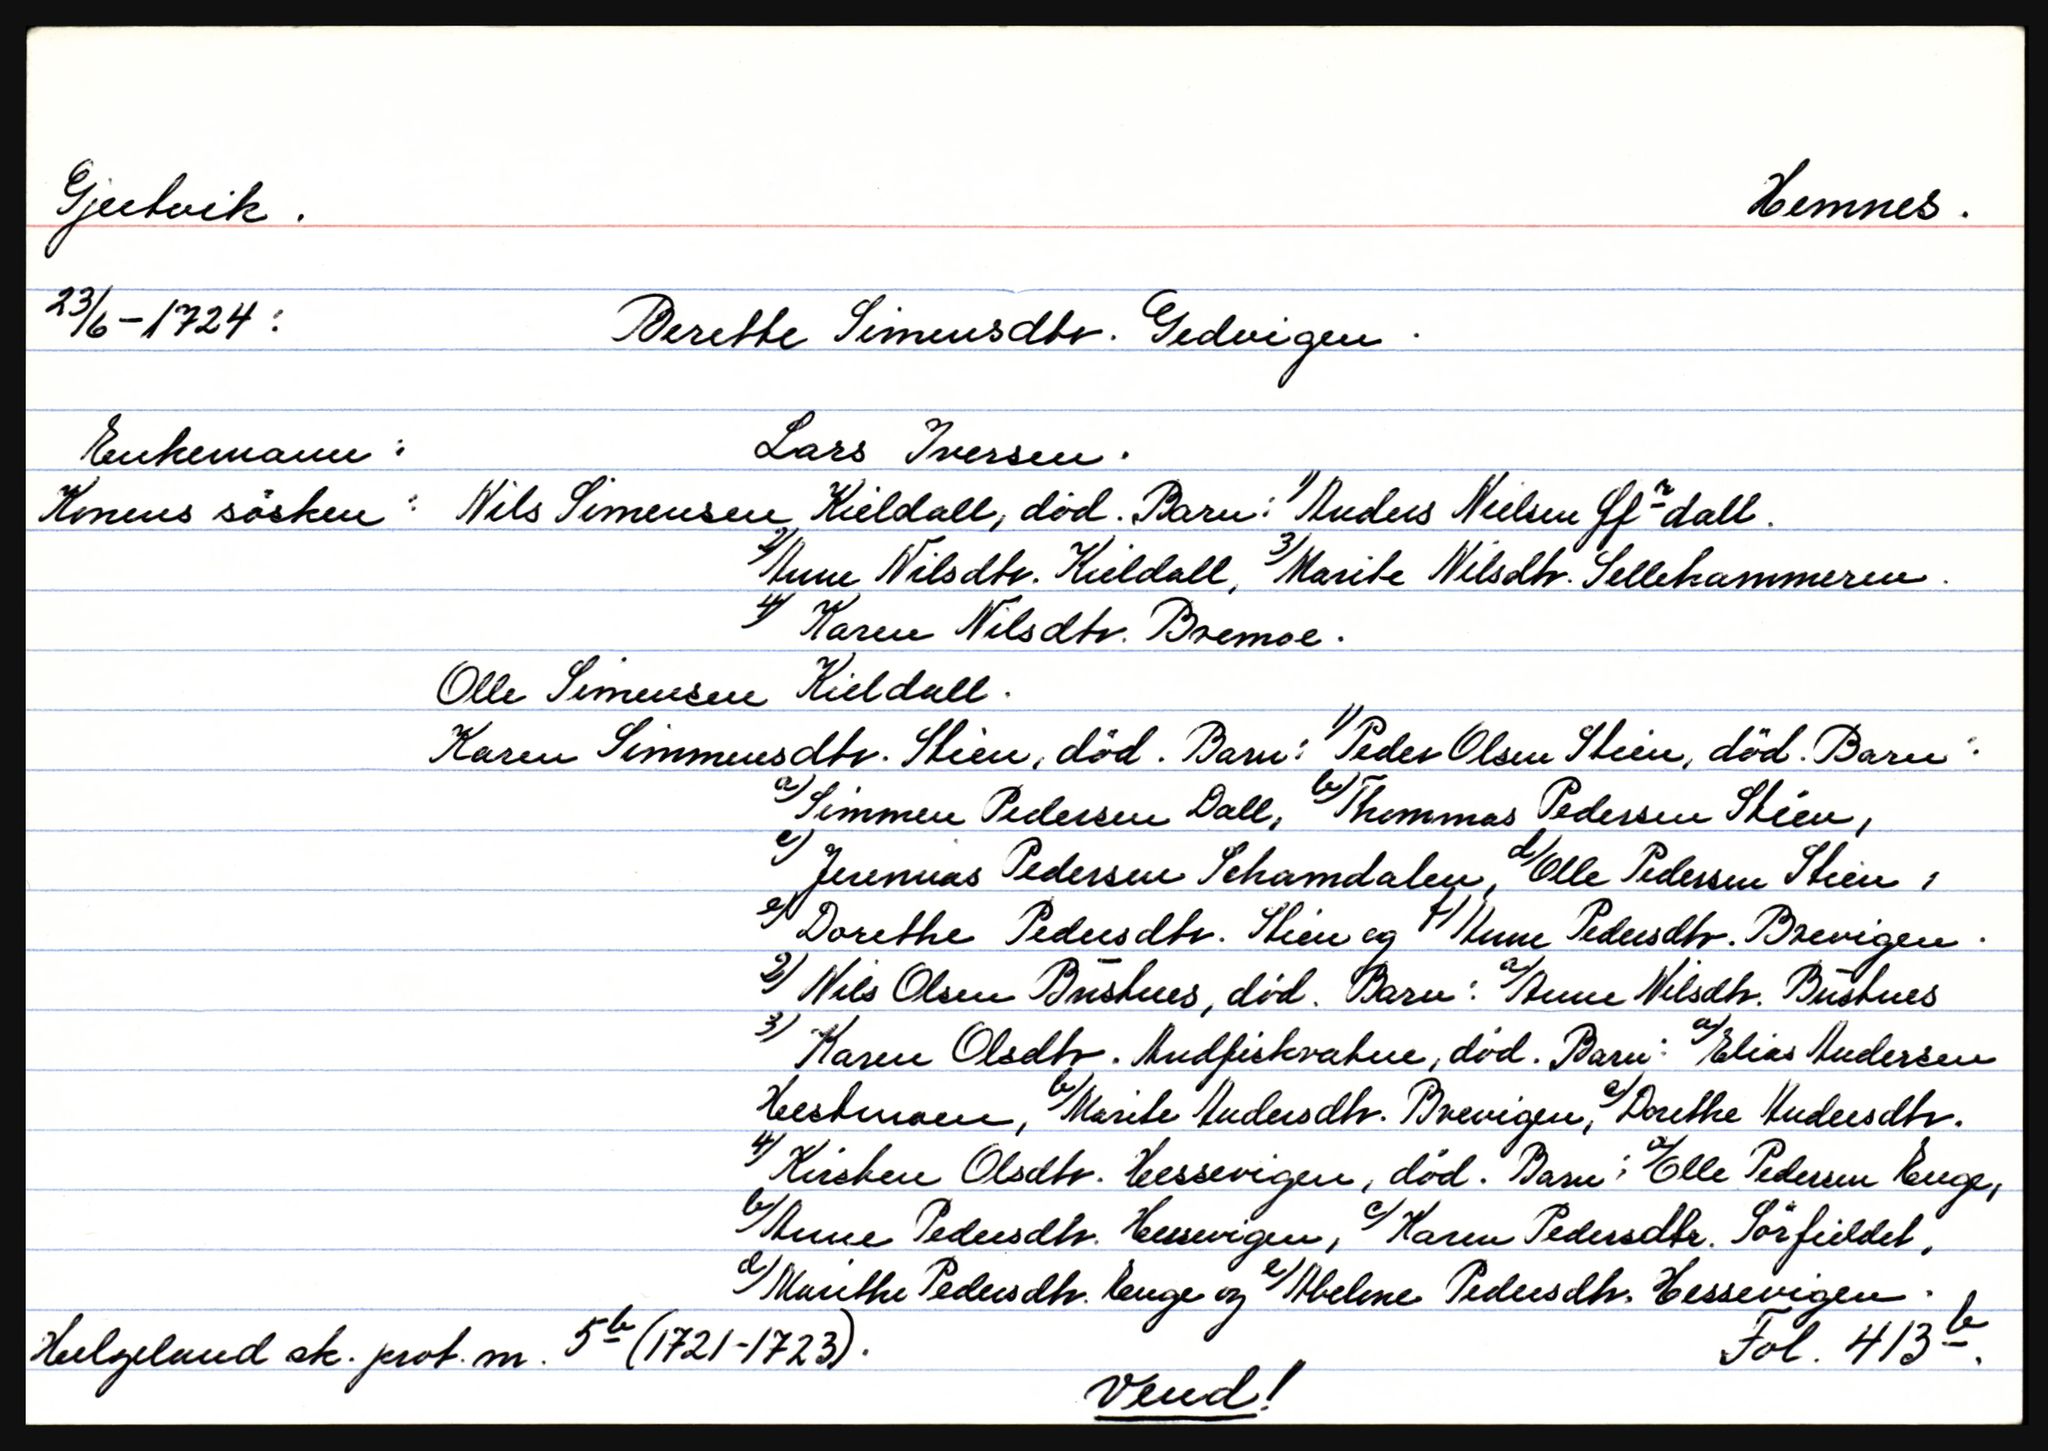 Gjertvik. Hemnes.
23/6-1724: Berethe Simensdtr. Gedvigen.
Enkemann: Lars Iversen.
Konens søsken: Nils Simensen Kieldall, död. Barn: 1) Anders Nielsen dall.
2) Anne Nilsdtr. Kieldall, 3) Marite Nilsdtr. Sellehammeren.
4) Karen Nilsdtr. Bremoe.
Olle Simensen Kieldall.
Karen Simmensdtr. Stien, död. Barn: 1) Peder Olsen Stien, död. Barn:
a) Simmen Pedersen Dall, b) Thommas Pedersen Stien,
c) Jeremias Pedersen Schamdalen, d) Olle Pedersen Stien,
e) Dorethe Pedersdtr. Stien og f) Anne Pedersdtr. Brevigen.
2) Nils Olsen Bustnes, död. Barn: a) Anne Nilsdtr. Bustnes
3) Karen Olsdtr. Andfiskvatne, död. Barn: a) Elias Andersen
Hestmoen, b) Marite Andersdtr. Brevigen, c) Dorethe Andersdtr.
4) Kirsten Olsdtr. Hessevigen, död. Barn: a) Olle Pedersen Enge,
b) Anne Pedersdtr. Hessevigen, c) Karen Pedersdtr. Sörfieldet,
d) Marithe Pedersdtr. Enge og e) Abelone Pedersdtr. Hessevigen.
Helgeland sk. prot. nr. 5b (1721-1723). Fol. 413b.
Vend!